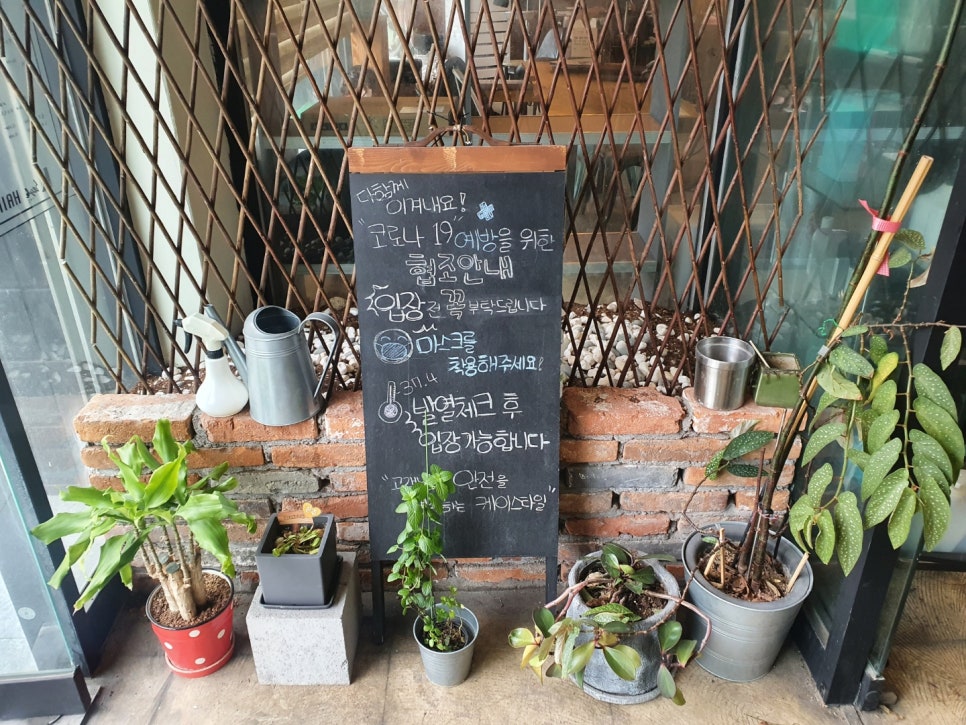 다함께
이겨내요!
"코로나 19" 예방을 위한
협조안내
입장 전 꼭 부탁드립니다
마스크를
착용해주세요!
37.4
발열체크 후
입장 가능합니다
" 안전을
케이스타일 "
HAIR